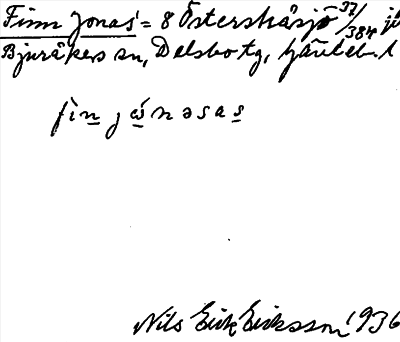 Finn Jonas' = 8 Östershåsjö 37/384 jb
Bjuråkers sn, Delsbo tg, Gävleb. l
fìn jónəsas
Nils Erik Eriksson 1936